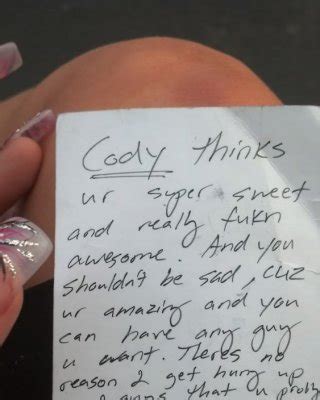 Cody thinks
ur super sweet
and really fukn
awesome. And you
shouldn't be sad, cuz
ur amazing and you
can have any guy
u want. Theres no
reason 2 get hung up
that u probly